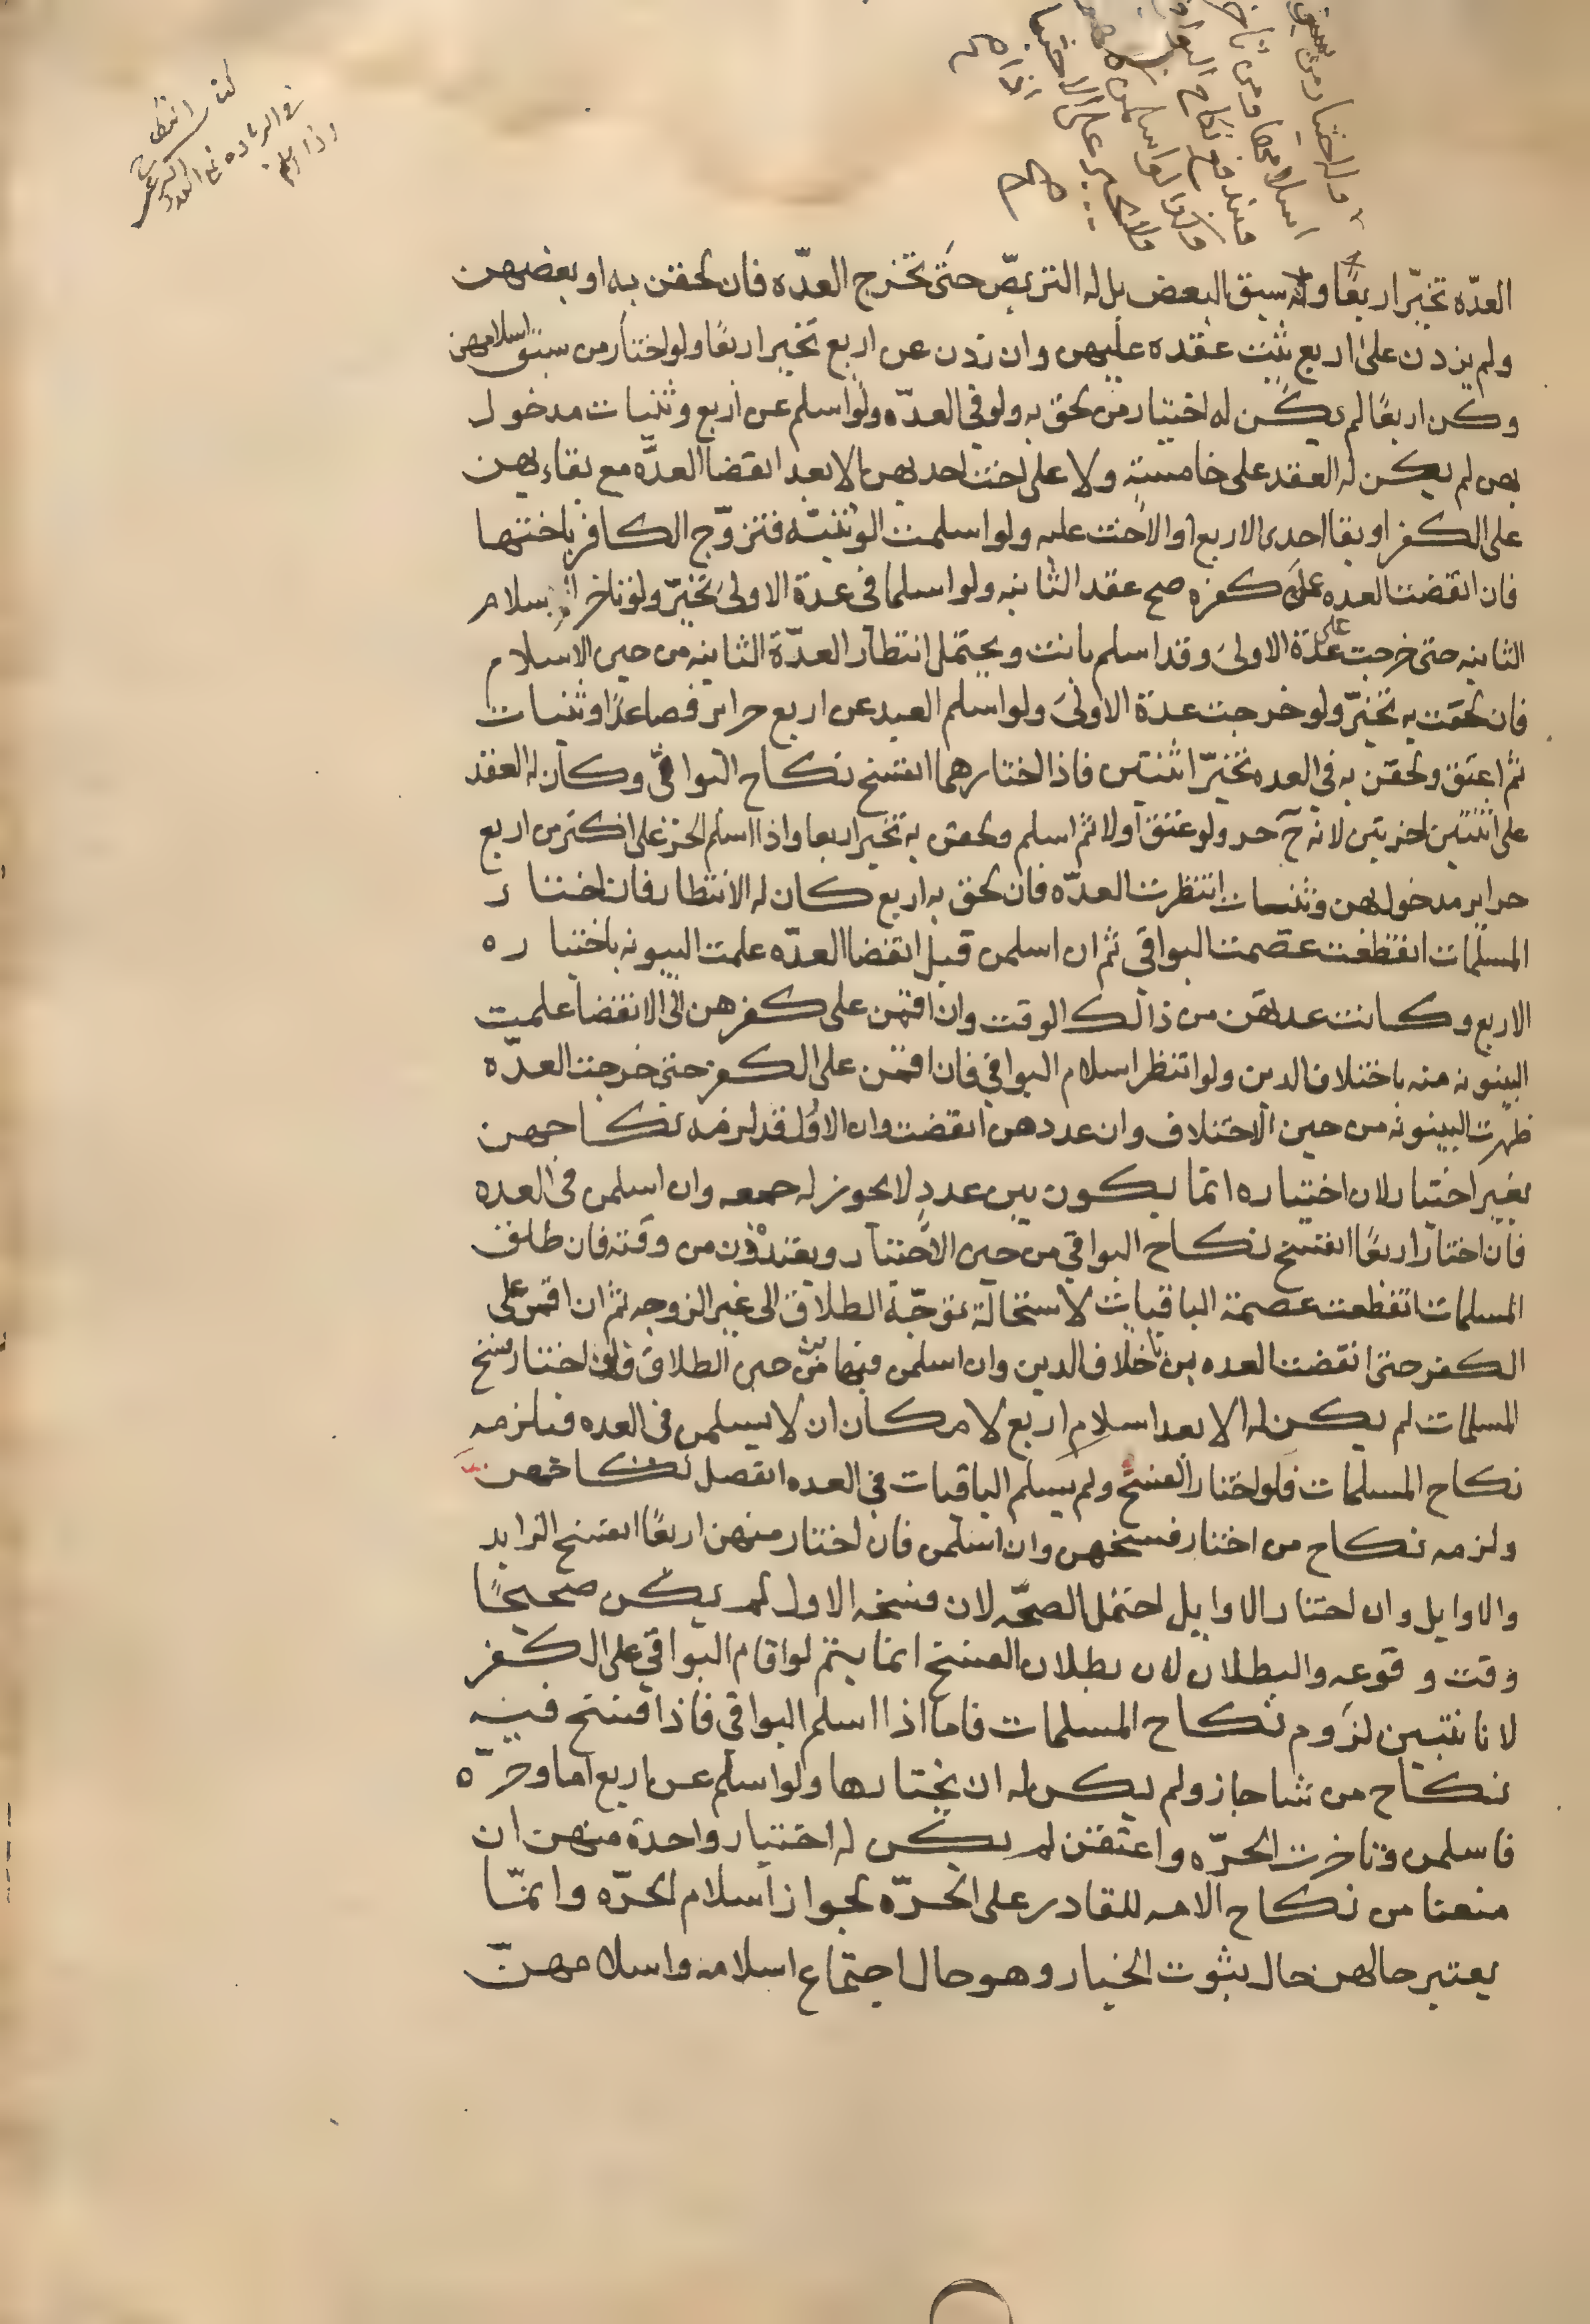 وله اختيار من سبق
اسلامها ومن تاخر
فيندفع نكاح البواقي
وكذا لو اسلمن
ولا يجبر على الاختيا
اذا صح
صح
العدّه تخيّر اربعًا وله سبق البعض بل له التربّص حتى تخرج العدّه فان لحقن به او بعضهن
ولم يزدن على اربع ثبت عقده عليهن وان زدن عن اربع تخير اربعًا ولو اختار من سبق اسلامهن
وكن اربعًا لم يكن له اختيار من لحق به ولو في العدّه ولو اسلم عن اربع وثنيات مدخول
بهن لم يكن له العقد على خامسة ولا على اخت احديهن الا بعد انقضا العدّه مع بقاءهن
على الكفر او بقا احدى الاربع او الاخت عليه ولو اسلمت الوثنيّه فتزوّج الكافر باختها
فان انقضت العده على كفره صح عقد الثانيه ولو اسلما في عدة الاولى تخيّر ولو تاخر اسلام
الثانيه حتى خرجت عدّة الاولى وقد اسلم بانت ويحتمل انتظار العدّة الثانيه من حين الاسلام
فان لحقت به تخيّر ولو خرجت عدة الاولى ولو اسلم العبد عن اربع حراير فصاعدًا وثنيات
ثم اعتق ولحقن به في العده تخيّر اثنتين فاذا اختارهما انفسخ نكاح البواقي وكان له العقد
على اثنتين اخريتين لانه ح حر ولو عتق اولا ثم اسلم ولحقن به تخير اربعا واذا اسلم الحر على اكثر من اربع
حراير مدخول بهن وثنيات انتظرت العدّه فان لحق به اربع كان له الانتظار فان اختار
المسلمات انقطعت عصمت البواقي ثم ان اسلمن قبل انقضا العدّه علمت البينونه باختياره
الاربع وكانت عدهن من ذالك الوقت وان اقمن على كفرهن الى الانقضا علمت
البينونه منه باختلاف الدين ولو انتظر اسلام البواقي فان اقمن على الكفر حتى خرجت العدّه
ظهرت البينونه من حين الاختلاف وان عددهن انقضت وان الاوُل قد لزمه نكاحهن
بغير اختيار لان اختياره انما يكون بين عددٍ لا يجوز له جمعه وان اسلمن في العده
فان اختار اربعًا انفسخ نكاح البواقي من حين الاختيار ويعتددْن من وقته فان طلق
المسلمات انقطعت عصمة الباقيات لاستحالة توجّه الطلاق الى غير الزوجه ثم ان اقمن على
الكفر حتى انقضت العده بن باختلاف الدين وان اسلمن فيها من حين الطلاق فان اختار فسخ
المسلمات لم يكن له الا بعد اسلام اربع لامكان ان لا يسلمن في العده فيلزمه
نكاح المسلمات فلو اختار الفسخ ولم يسلم الباقيات في العده انفصل نكاحهن
ولزمه نكاح من اختار فسخهن وان اسلمن فان اختار منهن اربعًا انفسخ الزايد
والاوايل وان اختار الاوايل احتمل الصحّه لان فسخه الاول لم يكن صحيحًا
وقت وقوعه والبطلان لان بطلان الفسخ انما يتم لو اقام البواقي على الكفر
لانا نتبين لزوم نكاح المسلمات فاما اذا اسلم البواقي فاذا فسخ فيه
نكاح من شا جاز ولم يكن له ان يختارها ولو اسلم عن اربع اما وحرّه
فاسلمن وتاخرت الحرّه واعتقن لم يكن له اختيار واحدة منهن ان
منعنا من نكاح الامه للقادر على الحرّه لجواز اسلام الحرّه وانمّا
يعتبر حالهن حال ثبوت الخيار وهو حال اجتماع اسلامه واسلامهنّ